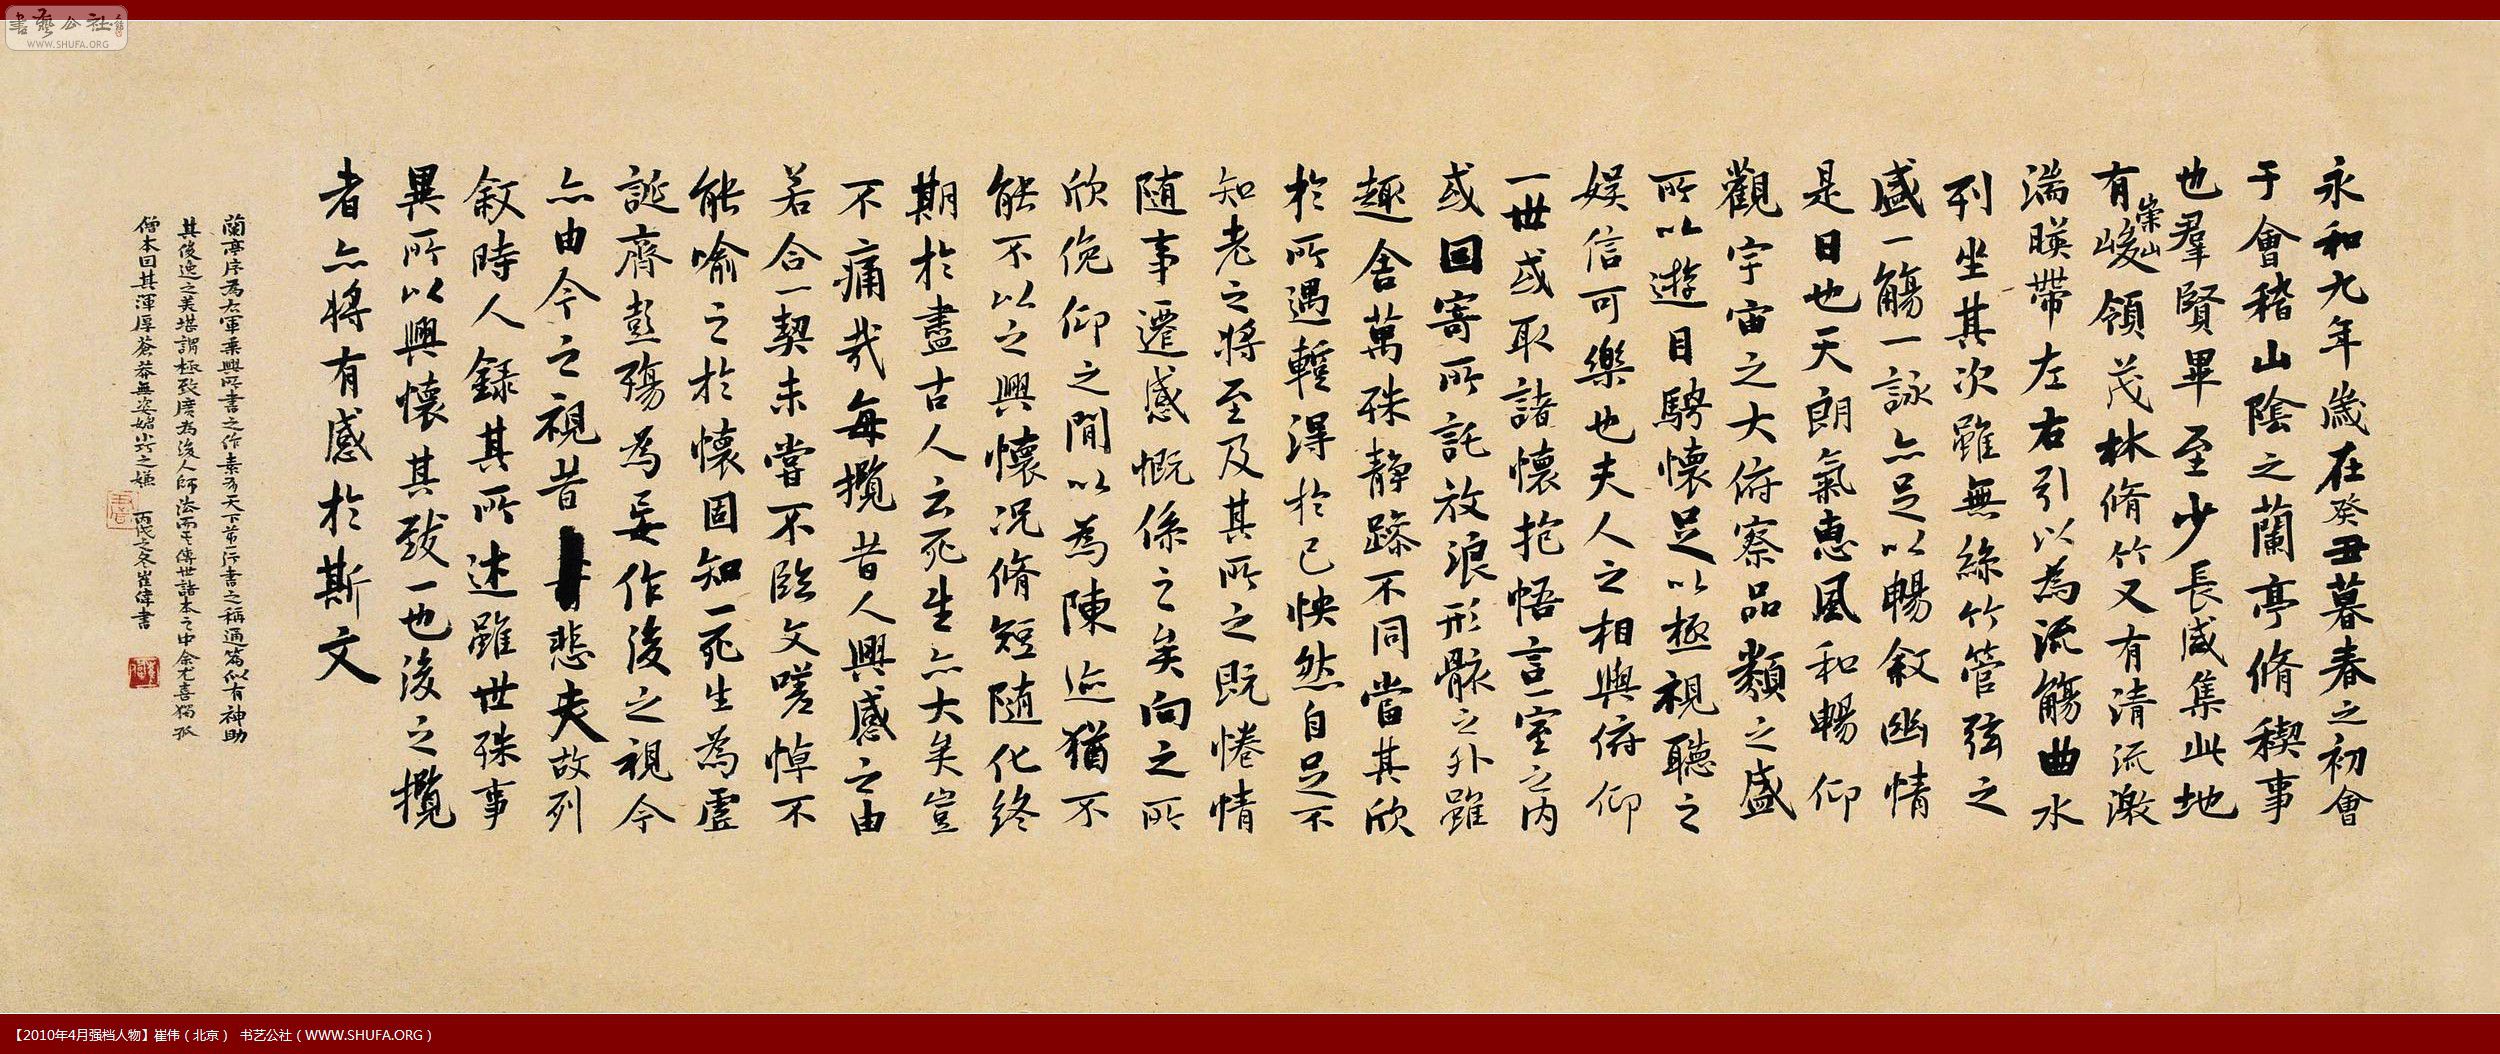 永和九年歲在癸丑暮春之初會
于會稽山陰之蘭亭脩稧事
也羣賢畢至少長咸集此地
有崇山峻領茂林脩竹又有清流激
湍暎帶左右引以為流觴曲水
列坐其次雖無絲竹管弦之
盛一觴一詠亦足以暢敘幽情
是日也天朗氣惠風和暢仰
觀宇宙之大俯察品類之盛
所以遊目騁懷足以極視聽之
娛信可樂也夫人之相與俯仰
一世或取諸懷抱悟言一室之内
或因寄所託放浪形骸之外雖
趣舎萬殊靜躁不同當其欣
於所遇蹔得於己怏然自足不
知老之將至及其所之既惓情
隨事遷感慨係之矣向之所
欣俛仰之閒以為陳迹猶不
能不以之興懷況脩短隨化終
期於盡古人云死生亦大矣豈
不痛哉每攬昔人興感之由
若合一契未嘗不臨文嗟悼不
能喻之於懷固知一死生為虛
誕齊彭殤為妄作後之視今
亦由今之視昔悲夫故列
敘時人錄其所述雖世殊事
異所以興懷其致一也後之攬
者亦將有感於斯文
蘭亭序為右軍乘興所書之作素有天下第一行書之稱通篇似有神助
其俊逸之美堪謂極致廣為後人師法而其傳世諸本之中余尤喜獨孤
僧本因其渾厚蒼莽無姿媚小巧之嫌 丙戌之冬崔偉書
書藝公社
WWW.SHUFA.ORG
【2010年4月强档人物】崔伟（北京） 书艺公社（WWW.SHUFA.ORG）